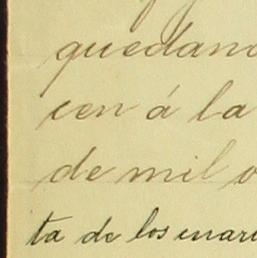 quedand
cen á la
de mil o
ta de los enar